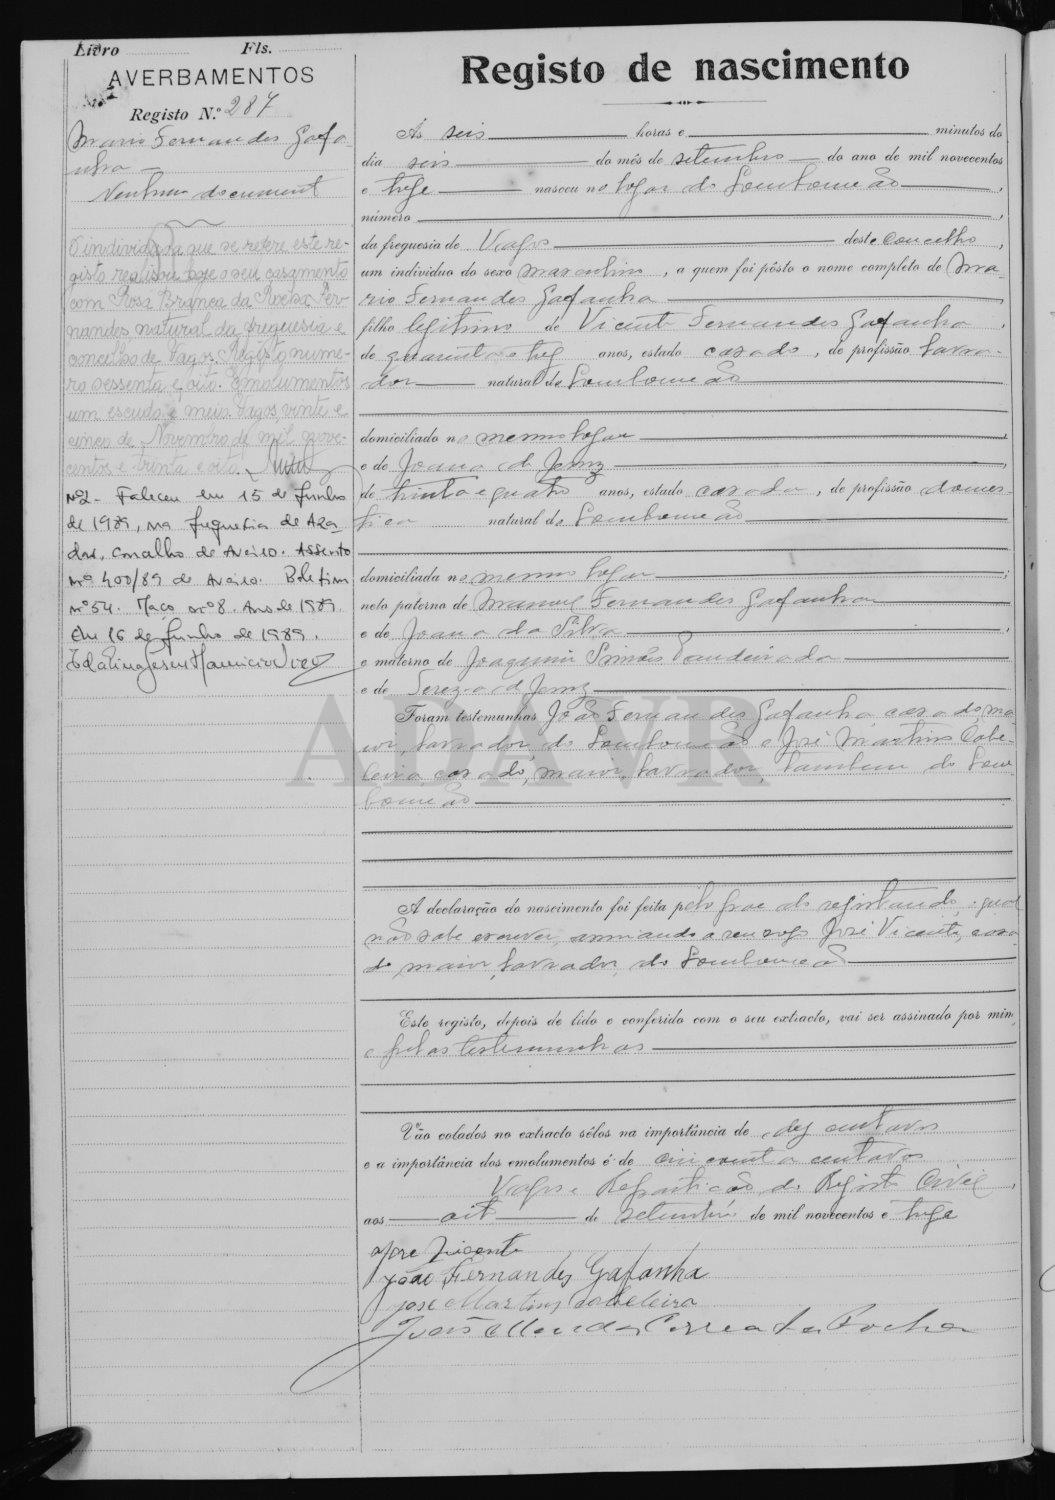 Livro Fls.
AVERBAMENTOS
Registo N.º 287
Mario Fernandes Gafa-
nha
Nenhum document
O individuo a que se refere este re-
gisto realisou hoje o seu casamento
com Rosa Branca da Rocha Fer-
nandes, natural da freguesia e
concelho de Vagos, Registo nume-
ro sessenta e oito. Emolumentos
um escudo e meio. Vagos, vinte e
cinco de Novembro de mil nove-
centos e trinta e oito.
Nº2 - Faleceu em 15 de Junho
de 1989, na freguesia de Ara-
das, Concelho de Aveiro. Assento
nº 400/89 de Aveiro. Boletim
nº 54. Maço nº 8. Ano de 1989.
Em 16 de Junho de 1989.
Registo de nascimento
Ás seis horas e minutos do
dia seis do mês de setembro do ano de mil novecentos
e treze nasceu no logar de Sombomeão,
número ,
da freguesia de Vagos deste concelho,
um indivíduo do sexo masculino, a quem foi pôsto o nome completo de Ma-
rio Fernandes Gafanha
filho legitimo de Vicente Fernandes Gafanha,
de quarenta e tres anos, estado casado, de profissão lavra-
dor natural de Sombomeão
domiciliado no mesmo logar,
e de Joana de Jesus,
de trinta e quatro anos, estado casada, de profissão domes-
tica natural de Sombomeão
domiciliada no mesmo logar;
neto paterno de Manuel Fernandes Gafanha
e de Joana da Silva,
e materno de Joaquim Simões
e de Tereza de Jesus
Foram testemunhas João Fernandes Gafanha, casado, ma-
ior, lavrador, de Sombomeão e José Martins Cabe-
leira, casado, maior, lavrador, tambem de Som-
bomeão
A declaração do nascimento foi feita pelo pae do registando, o qual
não sabe escrever, assinando a seu rogo José Vicente, casa-
do, maior, lavrador, de Sombomeão
Este registo, depois de lido e conferido com o seu extracto, vai ser assinado por mim,
e pelas testemunhas
Vão colados no extracto sêlos na importância de dez centavos
e a importância dos emolumentos é de cincoenta centavos
Vagos e Repartição do Registo Civil,
aos oito de setembro de mil novecentos e treze
José Vicente
João Fernandes Gafanha
José Martins Cabeleira
João Mendes Correa da Rocha
ADAVR